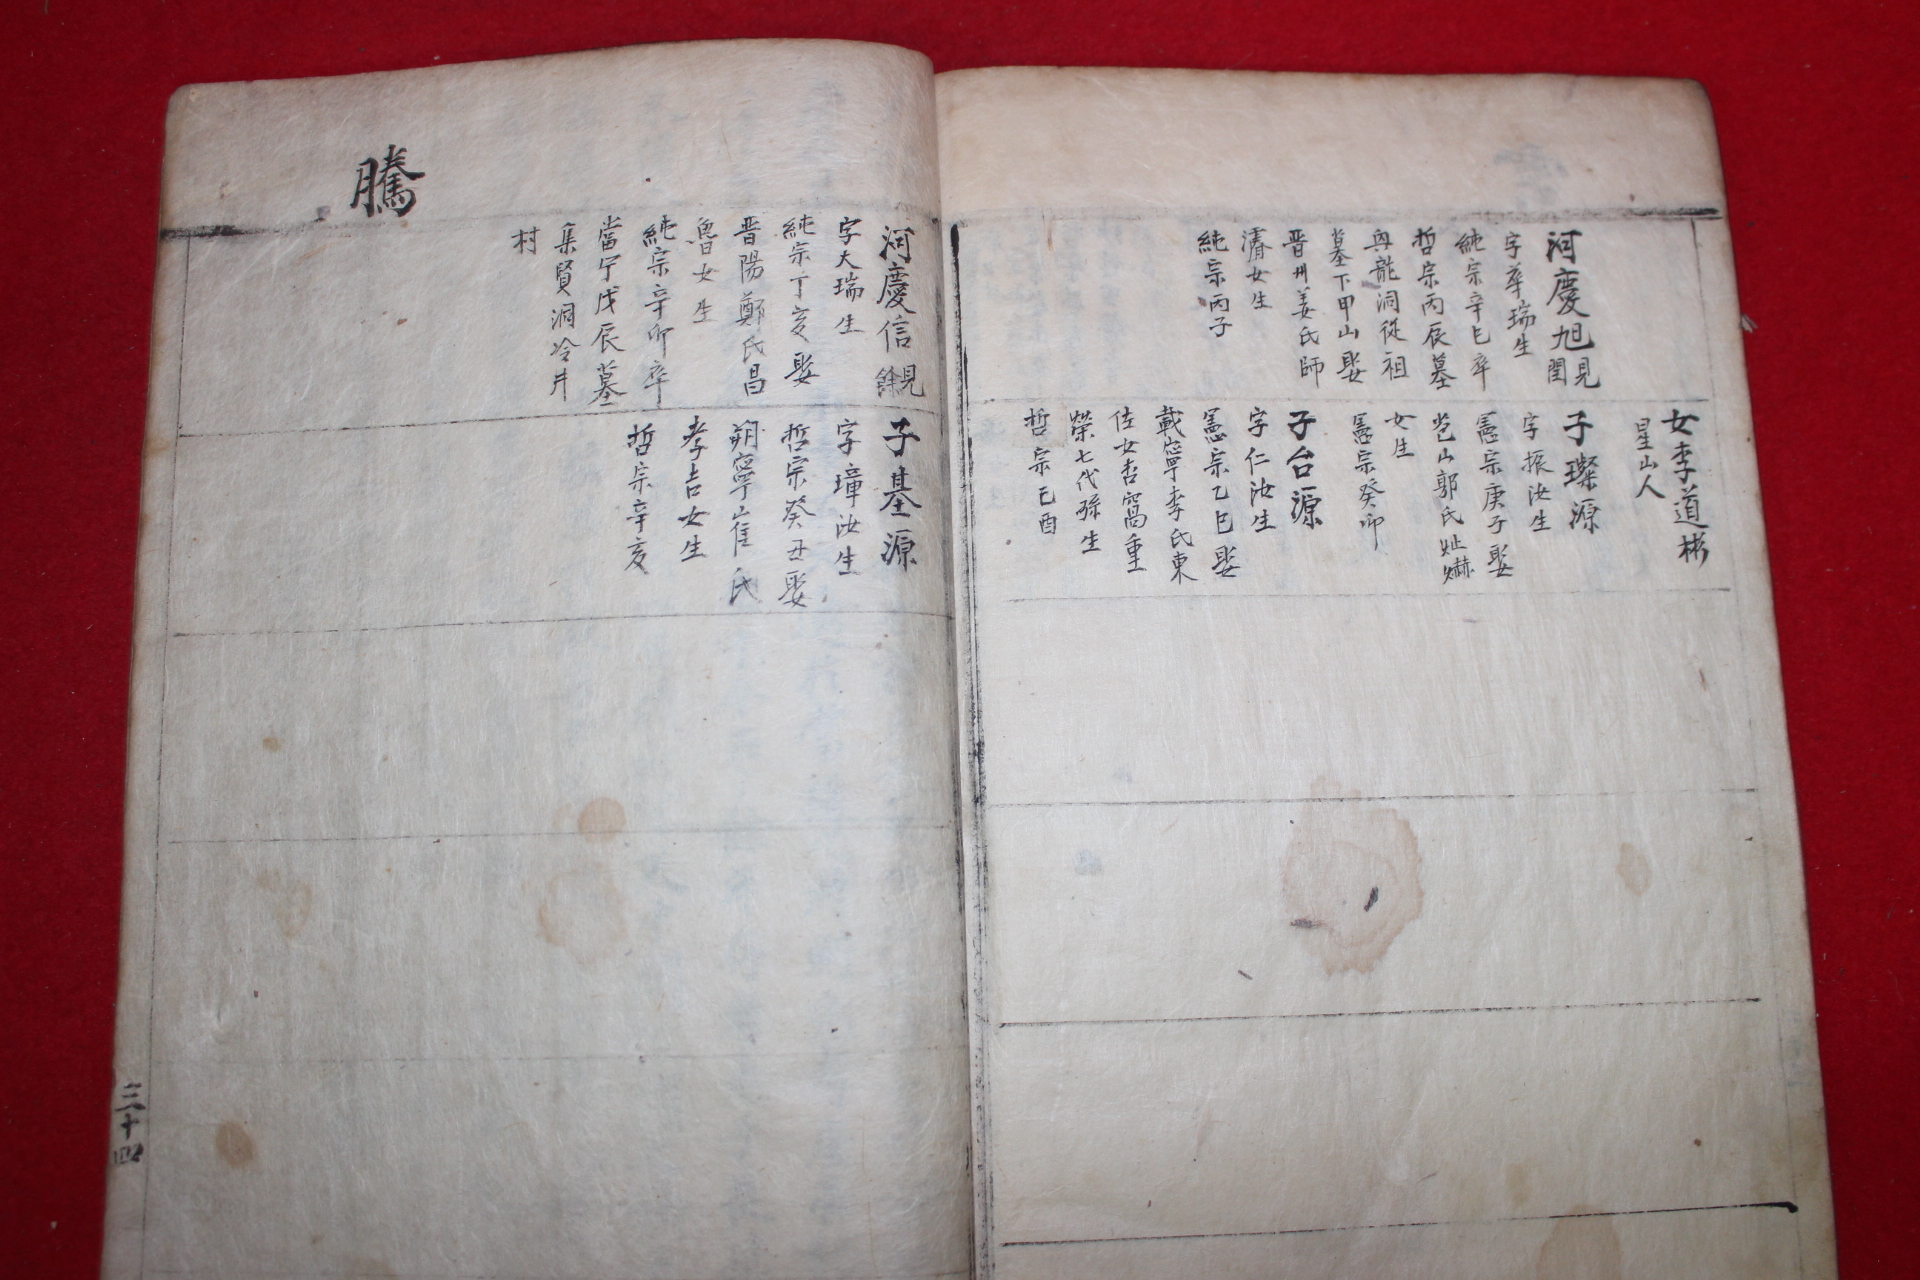 河慶旭見閏
字華瑞生
純宗辛巳卒
哲宗丙辰墓
與龍洞從祖
墓下甲山娶
晋州姜氏師
濬女生
純宗丙子
女李道彬
星山人
子璨源
字振汝生
憲宗庚子娶
苞山郭氏
女生
憲宗癸卯
子台源
字仁汝生
憲宗乙巳娶
載寧李氏東
佐女杏窩重
榮七代孫生
哲宗己酉
騰
河慶信見餘
字大瑞生
純宗丁亥娶
晋陽鄭氏昌
魯女生
純宗辛卯卒
當宁戊辰墓
集賢洞冷井
村
子基源
字璋汝生
哲宗癸丑娶
朔寧崔氏
孝吉女生
哲宗辛亥
三十四